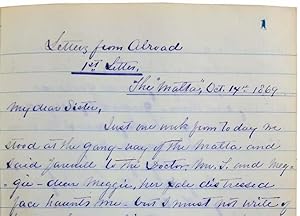 1
Letters from Abroad
1st Letter.
The "Malta", Oct. 14th 1869.
My dear Sister,
Just one week from today we
stood at the gang-way of the Malta and
said farewell to the Doctor, Mr. S. and Meg-
gie - dear Meggie, her pale distressed
face haunts me - but I must not write of